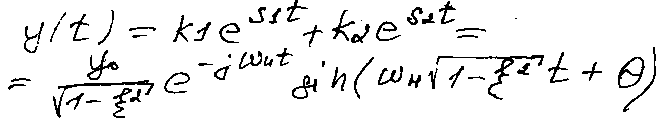 y(t) = k1e^{s1t} + k2e^{s2t} =
= \frac{y_0}{\sqrt{1-ξ^2}} e^{-jω_н t} sin(ω_н\sqrt{1-ξ^2} t + Θ)